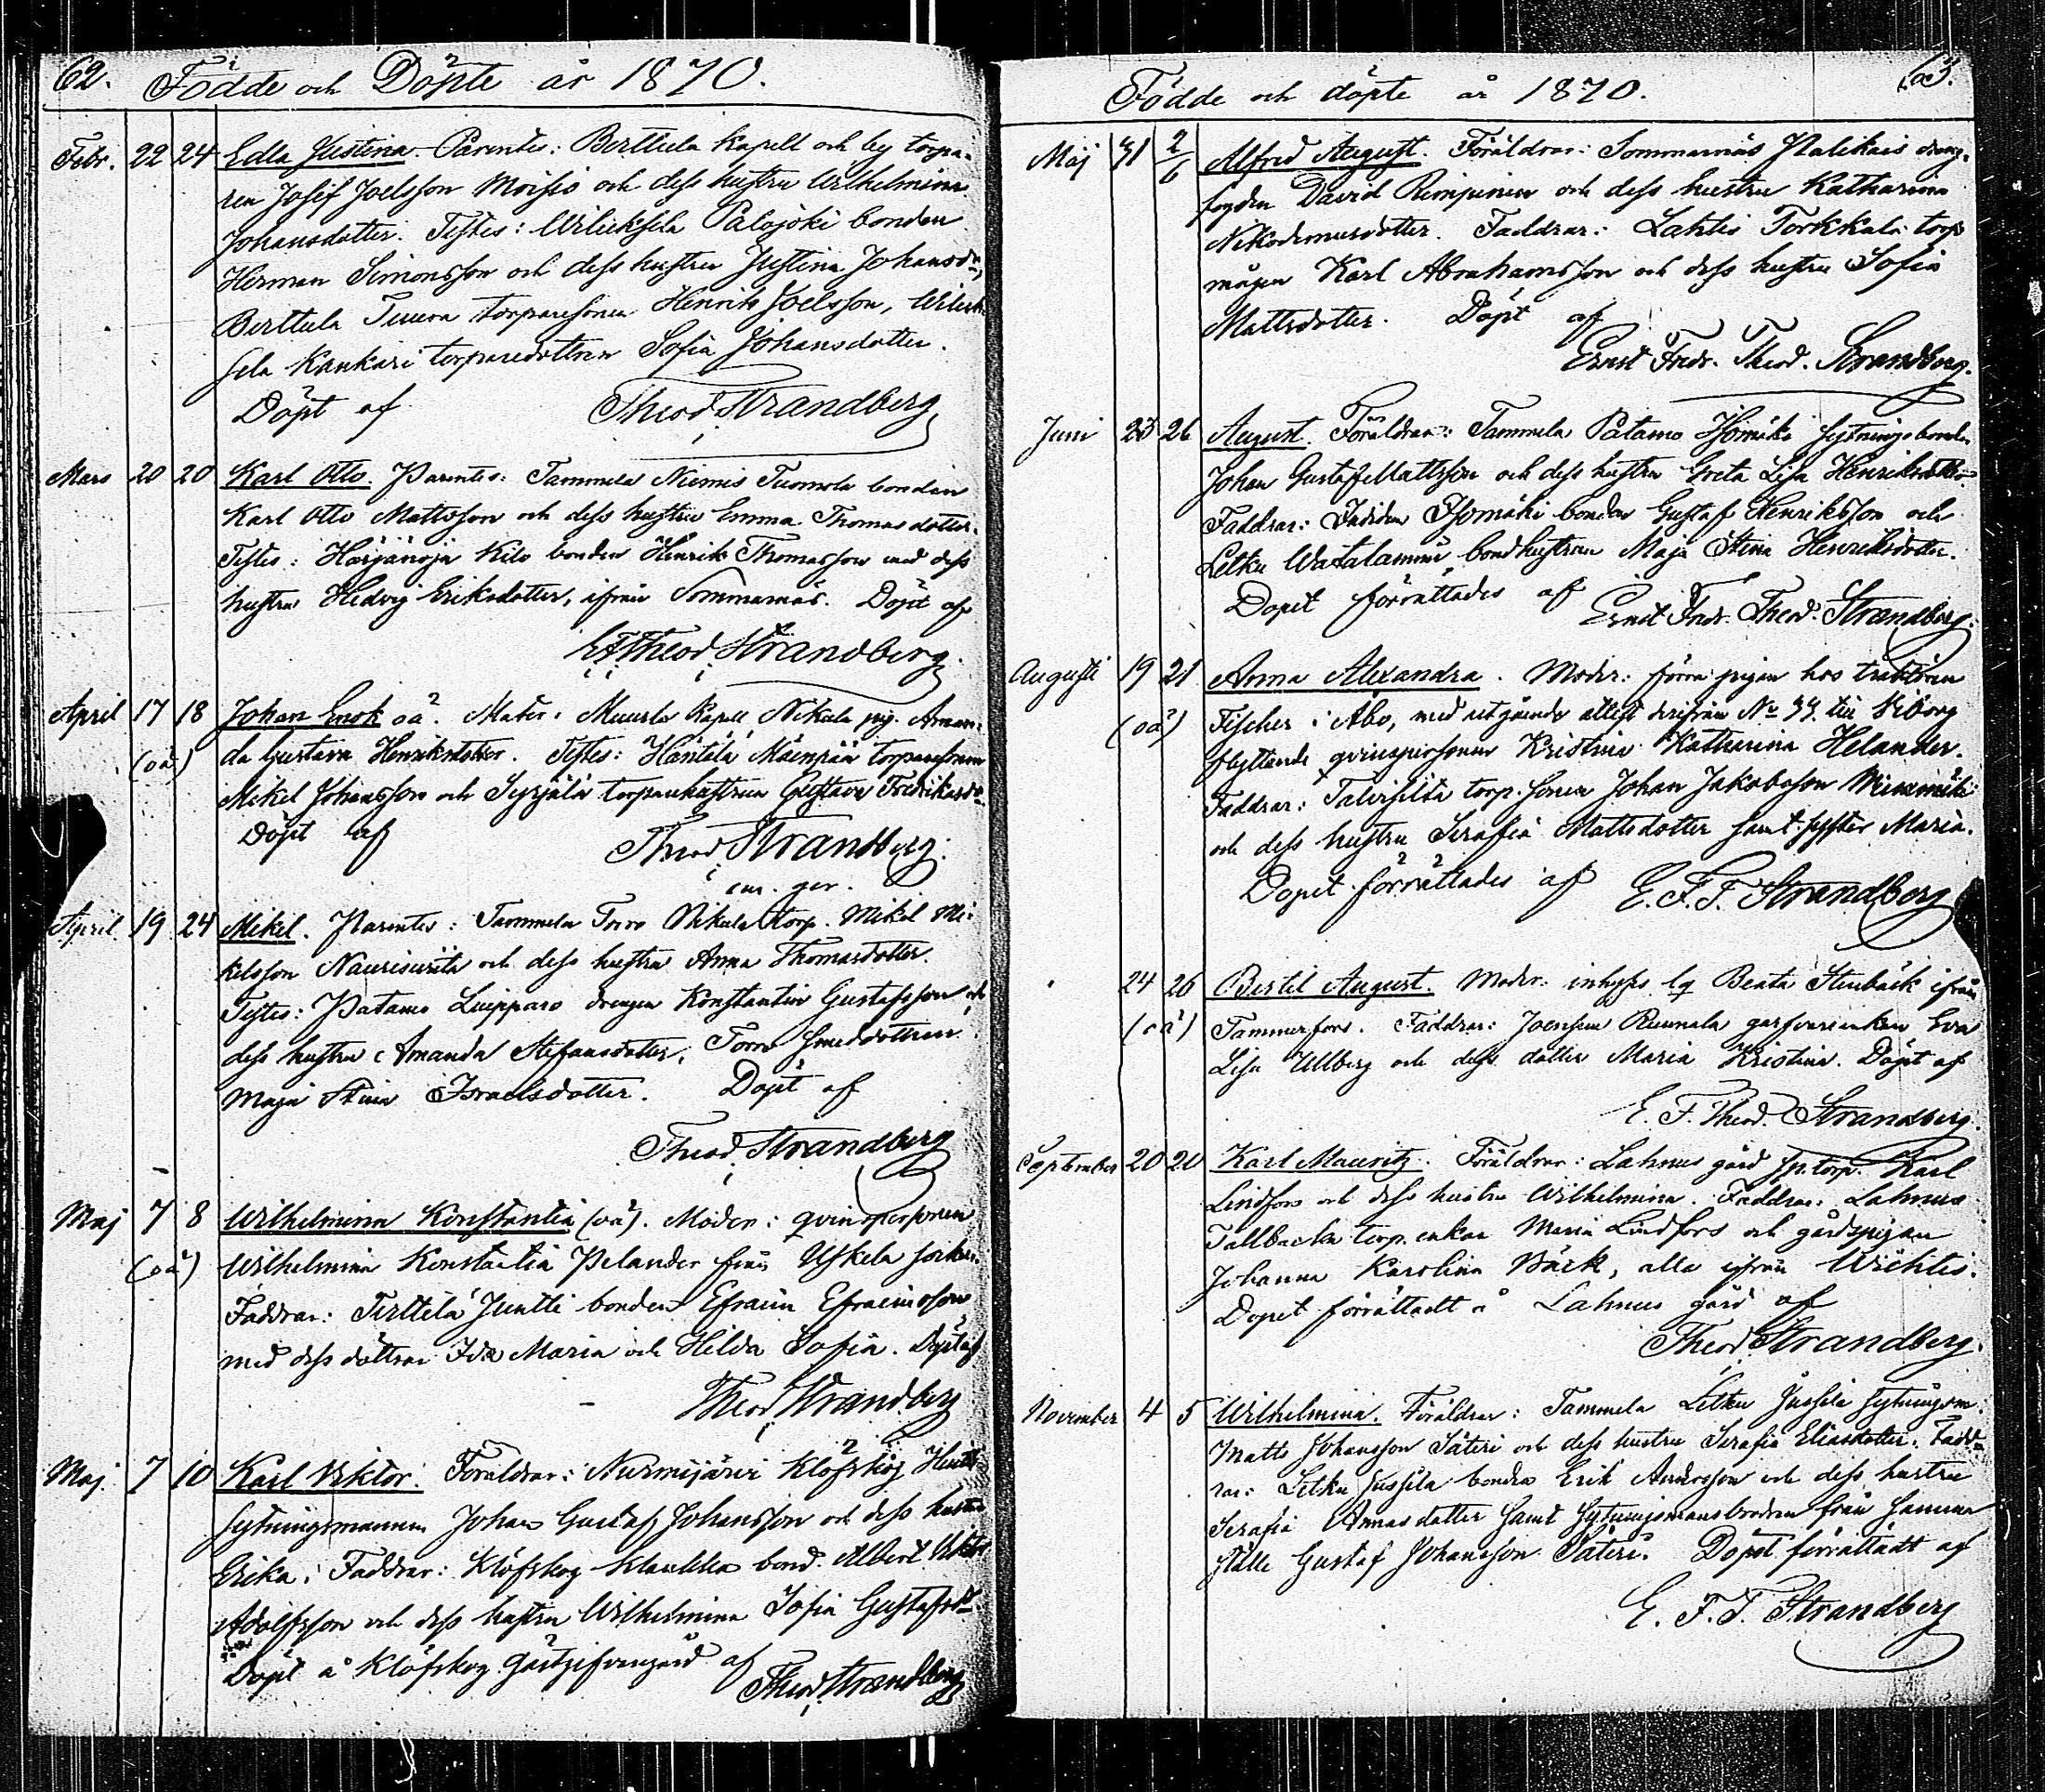 62. Födde och Döpte år 1870.
Febr. 22 24 Edla Justina. Parentes: Berttula Kapell och by torpa-
ren Josef Joelsson Moisio och dess hustru Wilhelmina
Johansdotter. Testes: Palojoki bonden
Herman Simonsson och dess hustru Justina Johansdr,
Berttula Tuura torparesonen Henrik Joelsson,
sela Kankari torparedottren Sofia Johansdotter.
Döpt af Theod Strandberg
Mars 20 20 Karl Otto. Parentes: Tammela Niemis Tuomola bonden
Karl Otto Mattsson och dess hustru Emma Thomasdotter.
Testes: Härjänoja Kilo bonden Henrik Thomasson med dess
hustru Hedvig Eriksdotter, ifrån Sommarnäs. Döpt af
E F Theod Strandberg.
April 17 18 Johan Enok oä. Mater: Muurla Kapell Nikula pig. Aman-
(oä) da Gustava Henriksdotter. Testes: Häntälä Mäenpää torparesonen
Mikel Johansson och Syrjälä torparehustrun Gustava Fredriksdr.
Döpt af Theod Strandberg.
em. ger.
April 19 24 Mikel. Parentes: Tammela Torro Nikula torp. Mikel Mi-
kelsson och dess hustru Anna Thomasdotter.
Testes: Patamo drengen Konstantin Gustafsson och
dess hustru Amanda Stefansdotter, Torro smeddottren
Maja Stina Israelsdotter. Döpt af
Theod Strandberg
Maj 7 8 Wilhelmina Konstantia (oä). Moder: qvinspersonen
(oä) Wilhelmina Konstantia Pelander från Uskela socken.
Faddrar: Terttilä Juntti bonden Efraim Efraimsson
med dess döttrar Ida Maria och Hilda Sofia. Döpt af
Theod Strandberg
Maj. 7 10 Karl Viktor. Föräldrar: Nurmijärvi Klöfskog
sytningsmannen Johan Gustaf Johansson och dess hustru
Erika. Faddrar: Klöfskog Klaukka bond. Albert Viktor
Adolfsson och dess hustru Wilhelmina Sofia Gustafsdr
Döpt å Klöfskog gästgifvaregård af Theod Strandberg
63.
Födde och döpte år 1870.
Maj 31 2/6 Alfred August. Föräldrar: Sommarnäs Palikais dreng-
fogden David Rimpinen och dess hustru Katharina
Nikodemusdotter. Faddrar: Lahtis Torkkala torp
mågen Karl Abrahamsson och dess hustru Sofia
Mattsdotter. Döpt af
Ernst Fredr. Theod. Strandberg.
Juni 23 26 August. Föräldrar: Tammela Patamo Isomäki sytningsbonden
Johan Gustaf Mattsson och dess hustru Greta Lisa Henriksdotter
Faddrar: Isomäki bonden Gustaf Henriksson och
Letku bondhustrun Maja Stina Henriksdotter.
Dopet förrättades af Ernst Fredr. Theod. Strandberg.
Augusti 19 21 Anna Alexandra. Moder: förra pigan hos traktören
(oä) Fischer i Åbo, med utgående attest derifrån No 34 till Viborg
flyttande qvinspersonen Kristina Katharina Helander.
Faddrar: Talvisilta torp. sonen Johan Jakobsson
och dess hustru Serafia Mattsdotter samt syster Maria.
Dopet förrättades af E. F. T. Strandberg
24 26 Bertil August. Moder: inhyses lq Beata Stenbäck ifrån
(oä) Tammerfors. Faddrar: Joensuu Ruunala garfvareenkan Eva
Lisa Ullberg och dess dotter Maria Kristina. Döpt af
E. F. Theod. Strandberg.
September 20 20 Karl Mauritz. Föräldrar: Lahnus gård sp. torp. Karl
Lindfors och dess hustru Wilhelmina. Faddrar: Lahnus
Tallbacka torp. enkan Maria Lindfors och gårdspigan
Johanna Karolina Bäck, alla ifrån Wichtis.
Dopet förrättadt å Lahnus gård af
Theod Strandberg.
November 4 5 Wilhelmina. Föräldrar: Tammela Letku Jussila sytningsm.
Matts Johansson Säteri och dess hustru Serafia Eliasdotter. Fadd-
rar: Letku Jussila bonden Erik Andersson och dess hustru
Serafia Annasdotter samt sytningsmansbrodren från samma
ställe Gustaf Johansson Säteri. Dopet förrättadt af
E. F. T. Strandberg